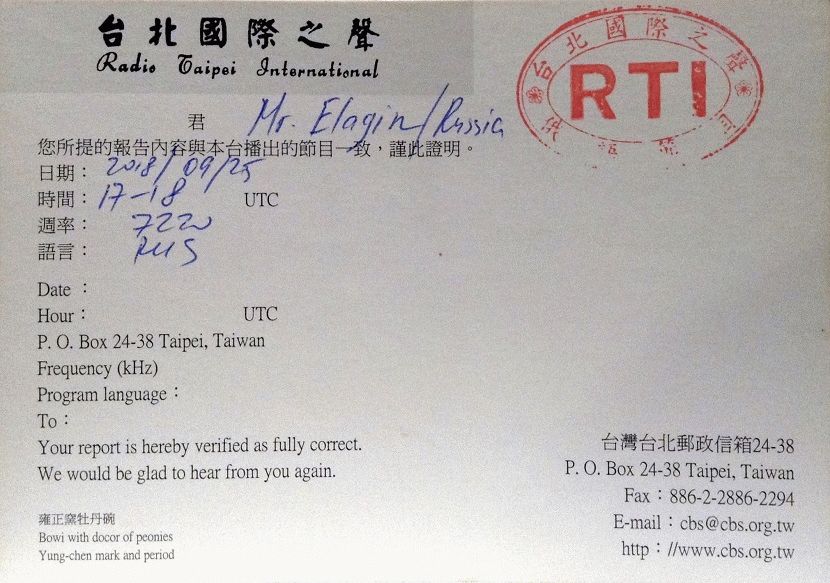 台北國際之聲
Radio Taipei International
台北國際之聲
RTI
君 Mr. Elagin/Russia
您所提的報告內容與本台播出的節目一致，謹此證明。
日期： 2018/09/25
時間： 17-18 UTC
週率： 7220
語言： RUS
Date：
Hour： UTC
P. O. Box 24-38 Taipei, Taiwan
Frequency (kHz)
Program language：
To：
Your report is hereby verified as fully correct.
We would be glad to hear from you again.
雍正窯牡丹碗
Bowi with docor of peonies
Yung-chen mark and period
台灣台北郵政信箱24-38
P. O. Box 24-38 Taipei, Taiwan
Fax：886-2-2886-2294
E-mail：cbs@cbs.org.tw
http：//www.cbs.org.tw